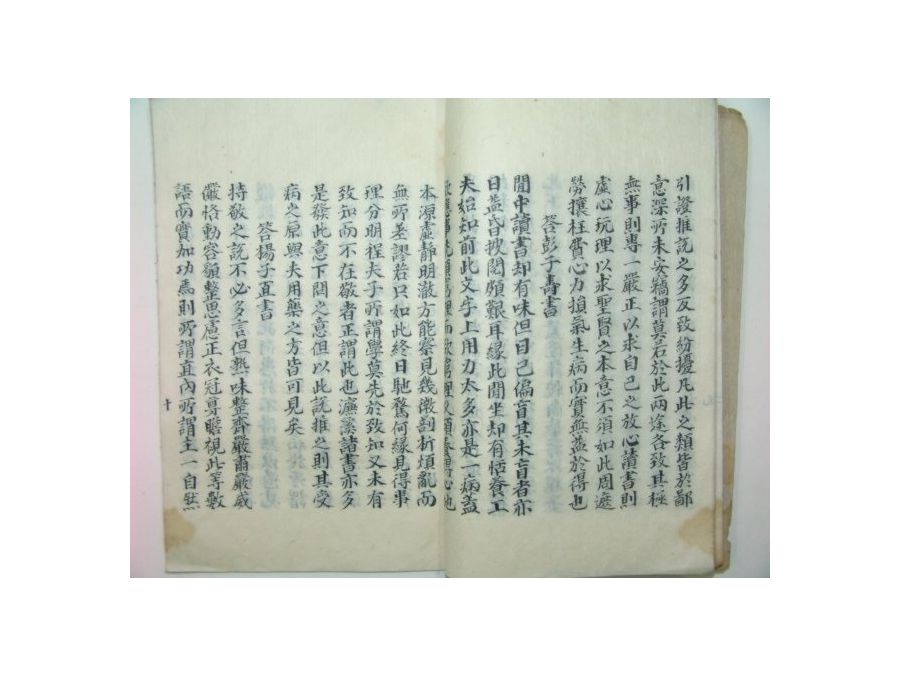 引證推說之多反致紛擾凡此之類皆於鄙
意深所未安竊謂莫若於此兩途各致其極
無事則專一嚴正以求自己之放心讀書則
虛心玩理以求聖賢之本意不須如此周遮
勞攘枉費心力損氣生病而實無益於得也
答彭子壽書
閒中讀書却有味但目已偏盲其未盲者亦
日益昏披閱頗艱耳緣此閒坐却有恬養工
夫始知前此文字上用力太多亦是一病蓋
欲應事先須窮理而欲窮理又須養得心地
本源虛靜明澈方能察見幾微剖析煩亂而
無所差謬若只如此終日馳騖何緣見得事
理分明程夫子所謂學莫先於致知又未有
致知而不在敬者正謂此也濂溪諸書亦多
是發此意下問之意但以此說推之則其受
病之原與夫用藥之方皆可見矣
答楊子直書
持敬之說不必多言但熟味整齊嚴肅嚴威
儼恪動容貌整思慮正衣冠尊瞻視此等數
語而實加功焉則所謂直內所謂主一自然
十